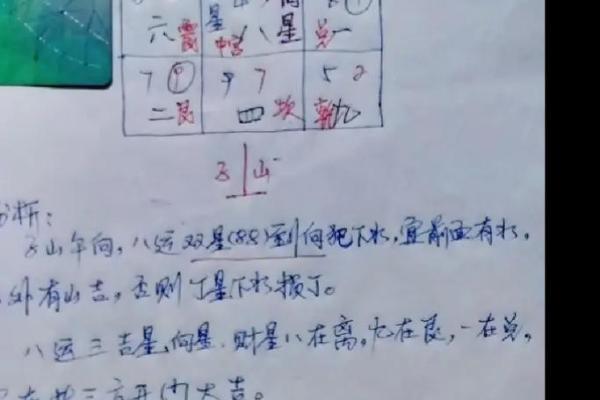 星 向
六 震 中宫 八 星 兑 一
7 9 9 7 5 2
二 艮 四 坎 乾 九
子 山
分析：
子山午向，八运双星(88)到向犯下水，宜前面有水，
外有山吉，否则丁星下水损丁。
八运三吉星，向星，财星八在离，九在艮，一在兑，
在此三方开门大吉。